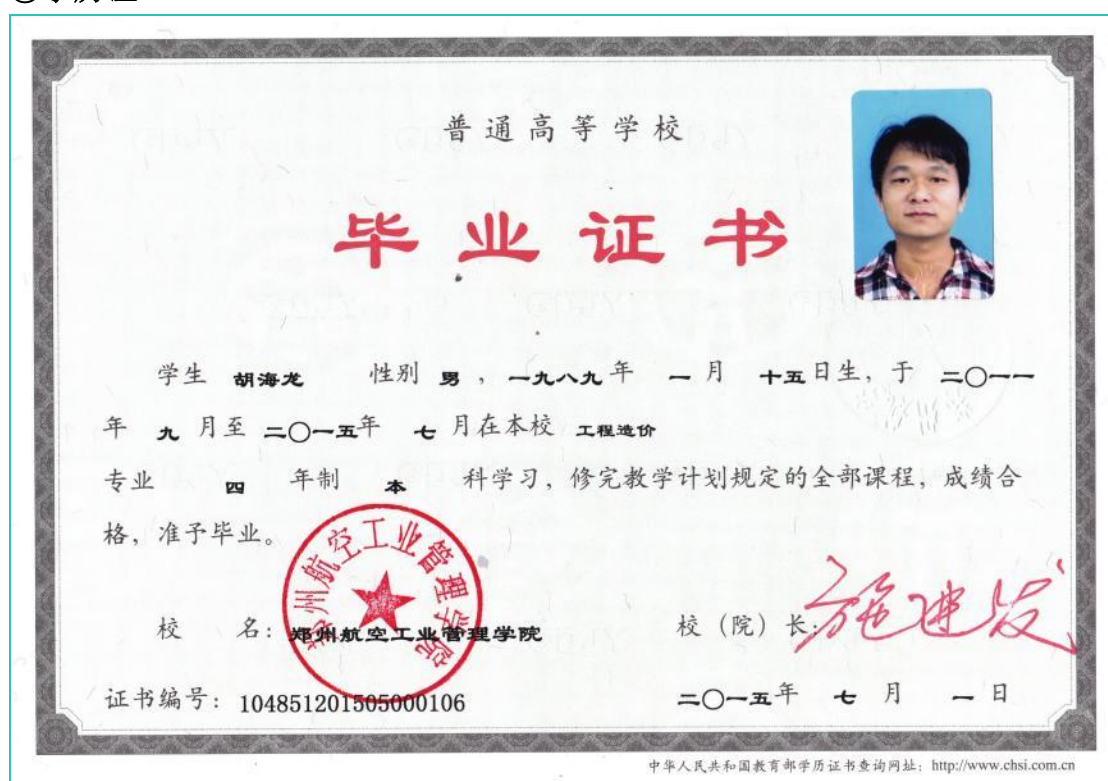 普通高等学校
毕业证书
学生 胡海龙 性别 男 ，一九八九 年 一 月 十五 日生，于 二〇一一
年 九 月至 二〇一五年 七 月在本校 工程造价
专业 四 年制 本 科学习，修完教学计划规定的全部课程，成绩合
格，准予毕业。
郑州航空工业管理学院
校 名：郑州航空工业管理学院 校（院）长：施进发
证书编号：104851201505000106 二〇一五年 七 月 一 日
中华人民共和国教育部学历证书查询网址：http://www.chsi.com.cn